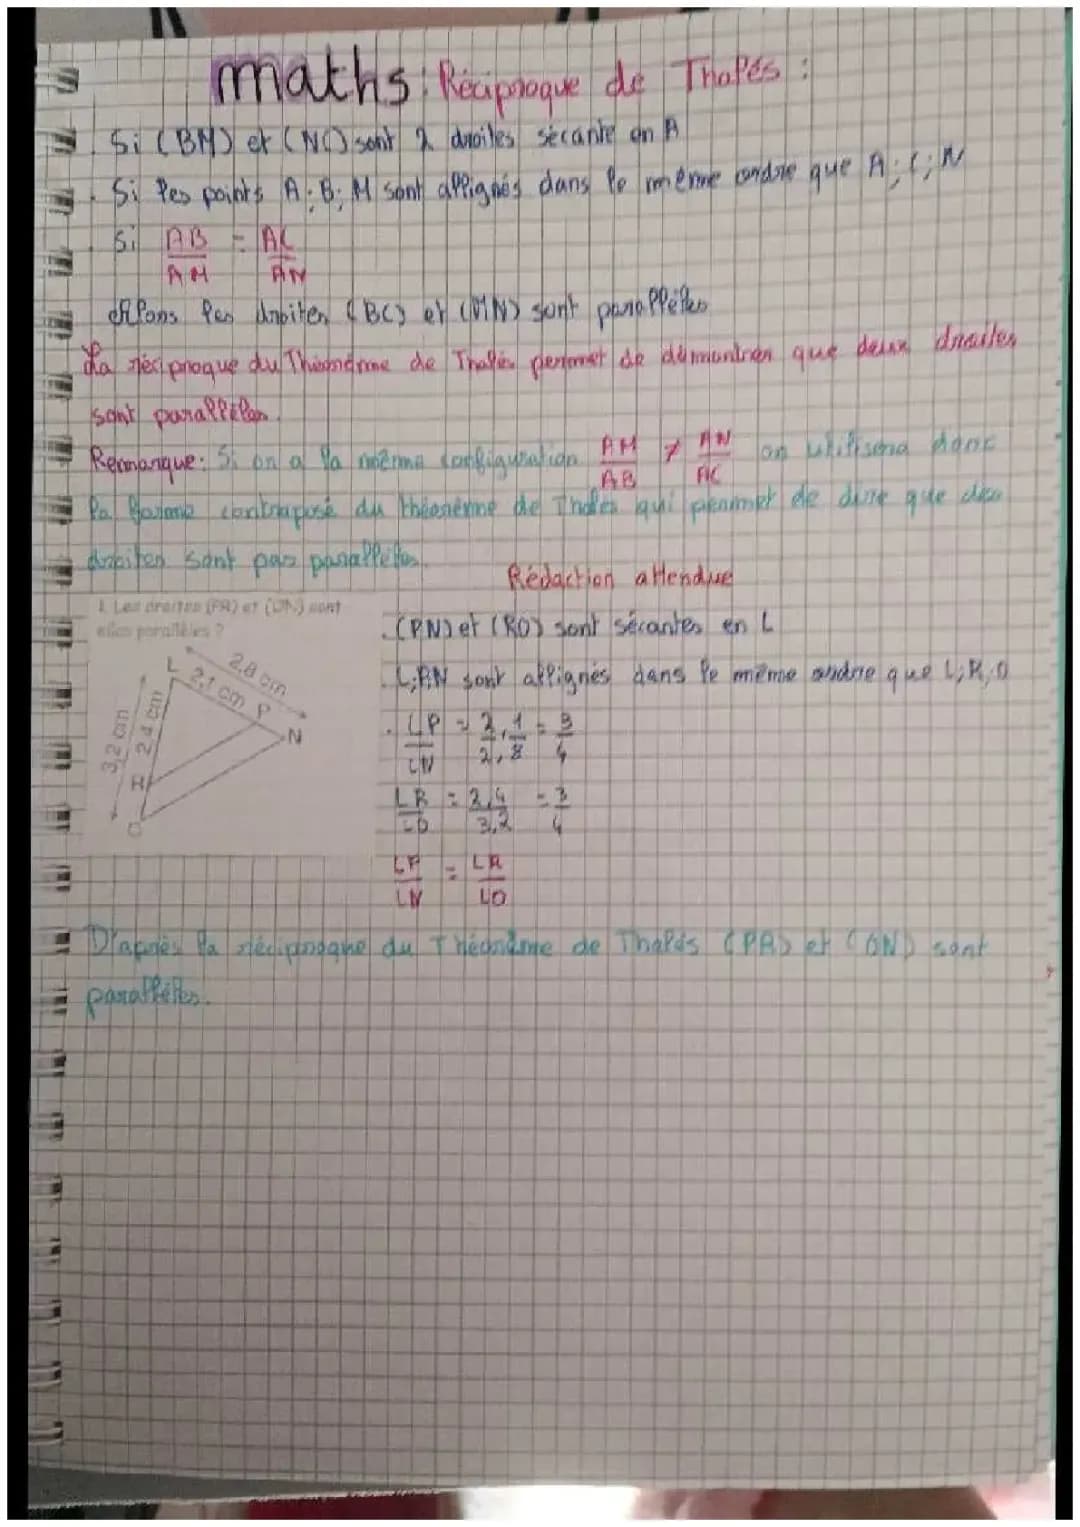 maths: Réciproque de Thalès :
. Si (BM) et (NC) sont 2 droites sécante en A
. Si les points A; B; M sont allignés dans le même ordre que A; C; N
. Si AB/AM = AC/AN
Alors les droites (BC) et (MN) sont parallèles
La réciproque du Théorème de Thalès permet de démontrer que deux droites
sont parallèles.
Remarque: Si on a la même configuration AM/AB ≠ AN/AC on utilisera donc
la forme contraposé du théorème de Thalès qui permet de dire que des
droites sont pas parallèles.
Rédaction attendue
1. Les droites (PR) et (ON) sont
elles parallèles ?
L
2,8 cm
2,1 cm
P
N
3,2 cm
2,4 cm
R
O
. (PN) et (RO) sont sécantes en L
. L;P;N sont allignés dans le même ordre que L; R; O
. LP/LN = 2,1/2,8 = 3/4
LR/LO = 2,4/3,2 = 3/4
LP/LN = LR/LO
D'après la réciproque du Théorème de Thalès (PR) et (ON) sont
parallèles.